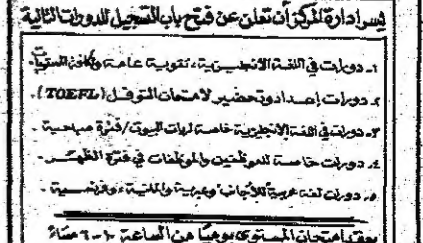 يسر ادارة المركز أن تعلن عن فتح باب التسجيل للدورات التالية
١. دورات في اللغة الانجليزية، تقوية عامة ولكافة المستويات.
٢. دورات إعداد وتحضير لامتحان التوفل (TOEFL).
٣. دورات في اللغة الإنجليزية خاصة لربات البيوت/فترة صباحية.
٤. دورات خاصة للموظفين والموظفات في فترة الظهر.
٥. دورات لغة عربية للأجانب وعبرية وألمانية، وفرنسية.
يعقد امتحان المستوى يومياً من الساعة ١٠-٦ مساءً